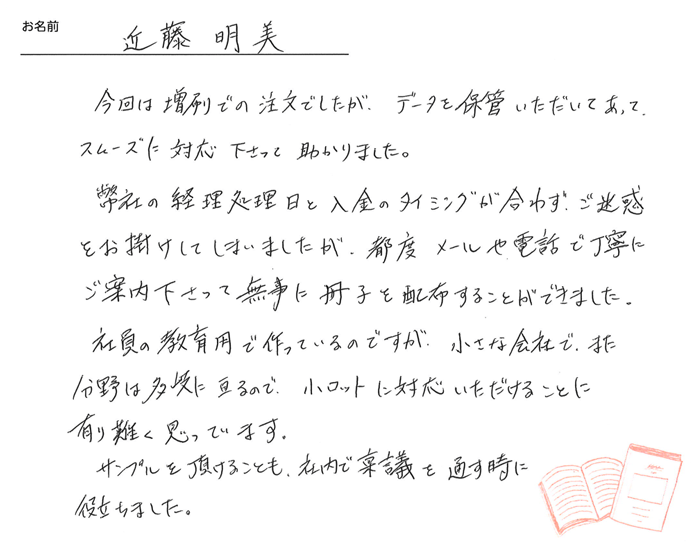 お名前
近藤 明美
今回は増刷での注文でしたが、データを保管いただいてあって、
スムーズに対応下さって助かりました。
弊社の経理処理日と入金のタイミングが合わず、ご迷惑
をお掛けしてしまいましたが、都度メールや電話で丁寧に
ご案内下さって無事に冊子を配布することができました。
社員の教育用で作っているのですが、小さな会社で、また
分野は多岐に亘るので、小ロットに対応いただけることに
有り難く思っています。
サンプルを頂けることも、社内で稟議を通す時に
役立ちました。